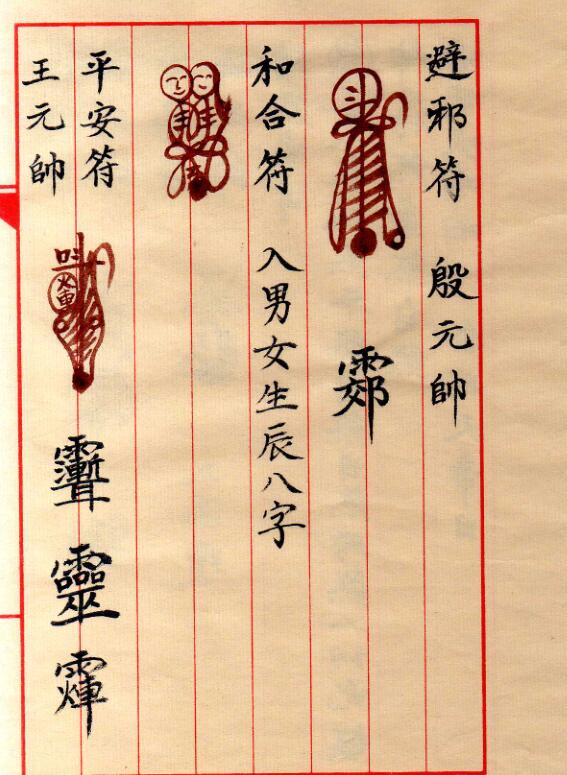 避邪符 殷元帥
和合符 入男女生辰八字
平安符
王元帥
靈